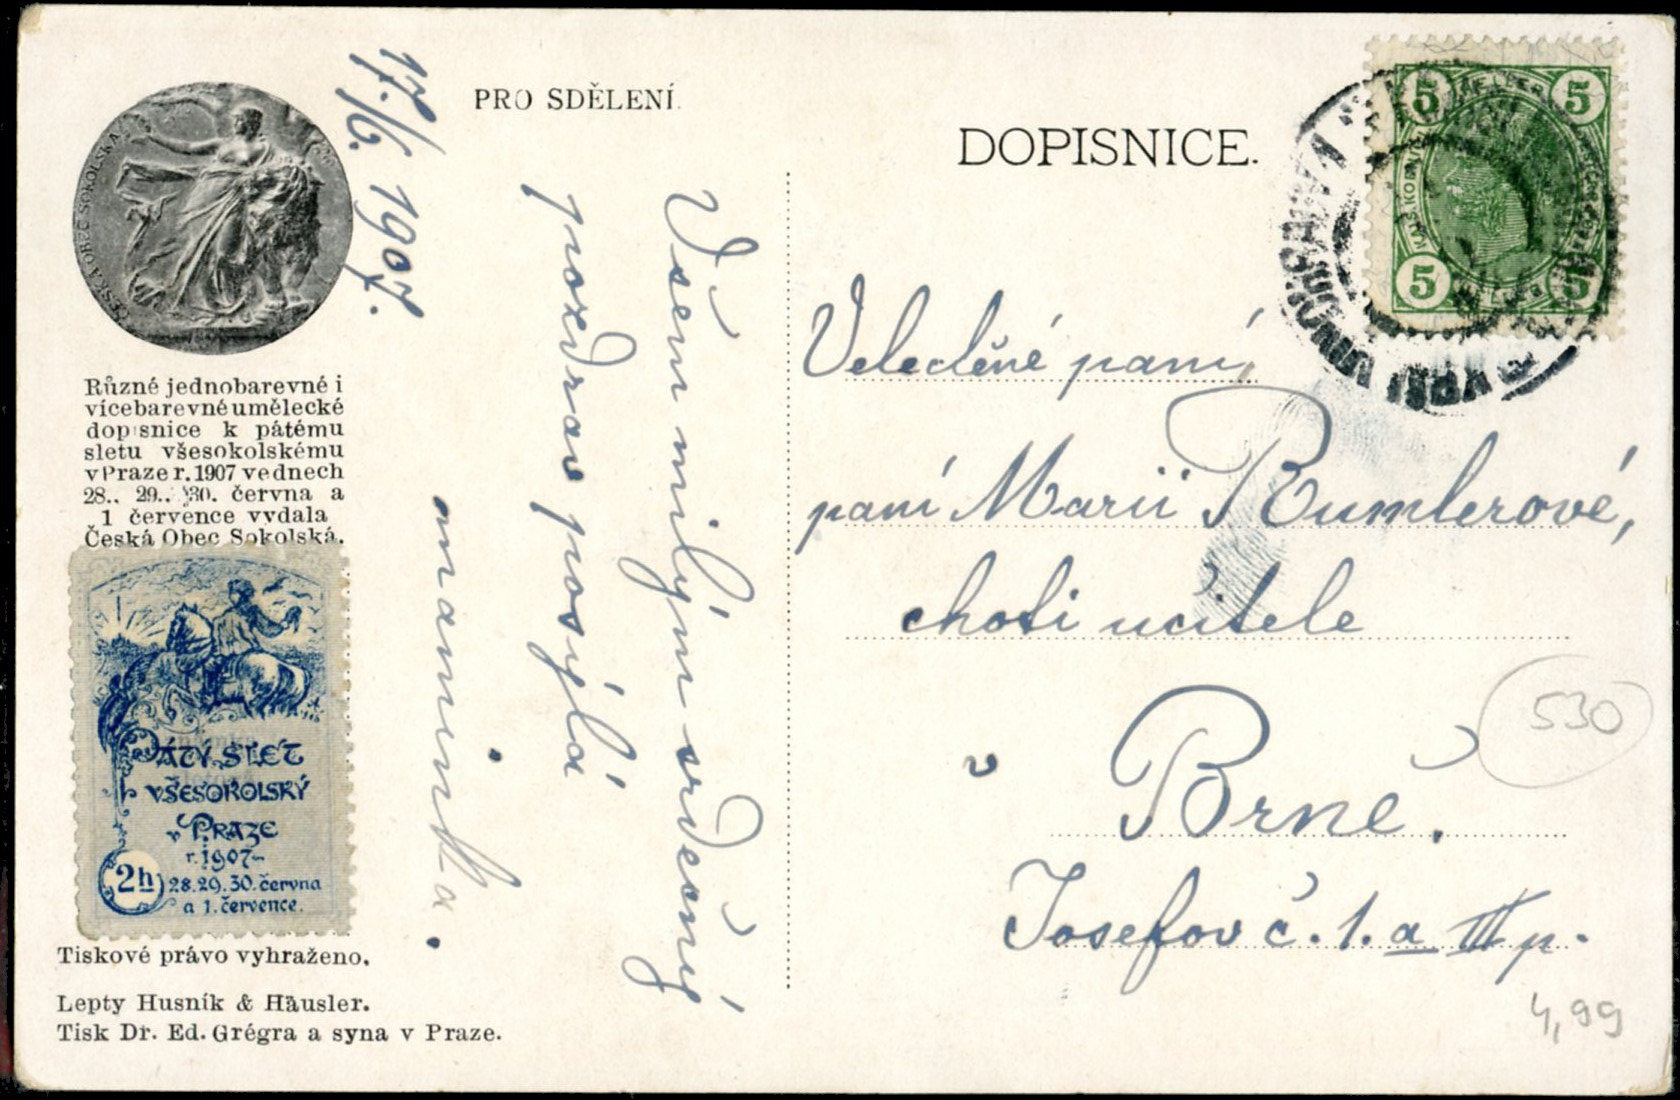 PRO SDĚLENÍ.
DOPISNICE.
ČESKÁ OBEC SOKOLSKÁ
Různé jednobarevné i
vícebarevné umělecké
dopisnice k pátému
sletu všesokolskému
v Praze r. 1907 ve dnech
28.. 29.. 30. června a
1 července vydala
Česká Obec Sokolská.
PÁTÝ SLET
VŠESOKOLSKÝ
v PRAZE
r. 1907
2h 28.29.30. června
a 1. července.
Tiskové právo vyhraženo.
Lepty Husník & Häusler.
Tisk Dr. Ed. Grégra a syna v Praze.
17./6. 1907.
Všem milým srdečný
pozdrav posýlá
maminka.
5 5
5 5
Velectěné paní,
paní Marii Rumlerové,
choti učitele
v Brně.
Josefov č. 1. a III p.
530
4,99